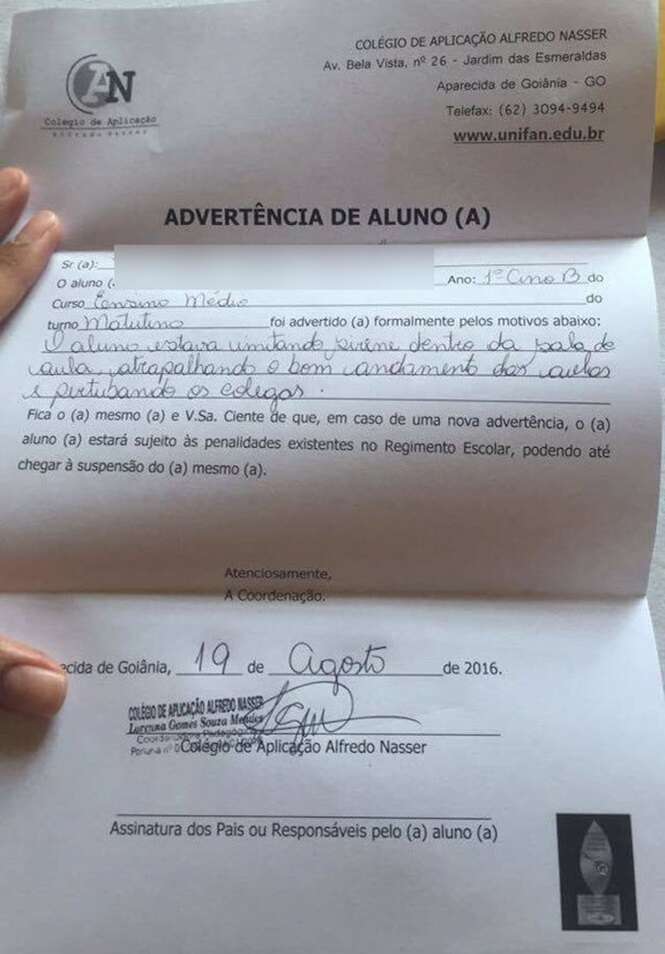 AN
Colégio de Aplicação
COLÉGIO DE APLICAÇÃO ALFREDO NASSER
Av. Bela Vista, nº 26 - Jardim das Esmeraldas
Aparecida de Goiânia - GO
Telefax: (62) 3094-9494
www.unifan.edu.br
ADVERTÊNCIA DE ALUNO (A)
Sr (a):
O aluno ( Ano: 1º Ano B do
Curso Ensino Médio do
turno Matutino foi advertido (a) formalmente pelos motivos abaixo:
O aluno estava imitando sirene dentro da sala de
aula, atrapalhando o bom andamento das aulas
e pertubando os colegas.
Fica o (a) mesmo (a) e V.Sa. Ciente de que, em caso de uma nova advertência, o (a)
aluno (a) estará sujeito às penalidades existentes no Regimento Escolar, podendo até
chegar à suspensão do (a) mesmo (a).
Atenciosamente,
A Coordenação.
ecida de Goiânia, 19 de Agosto de 2016.
COLÉGIO DE APLICAÇÃO ALFREDO NASSER
Lorenna Gomes Souza Mendes
Colégio de Aplicação Alfredo Nasser
Assinatura dos Pais ou Responsáveis pelo (a) aluno (a)